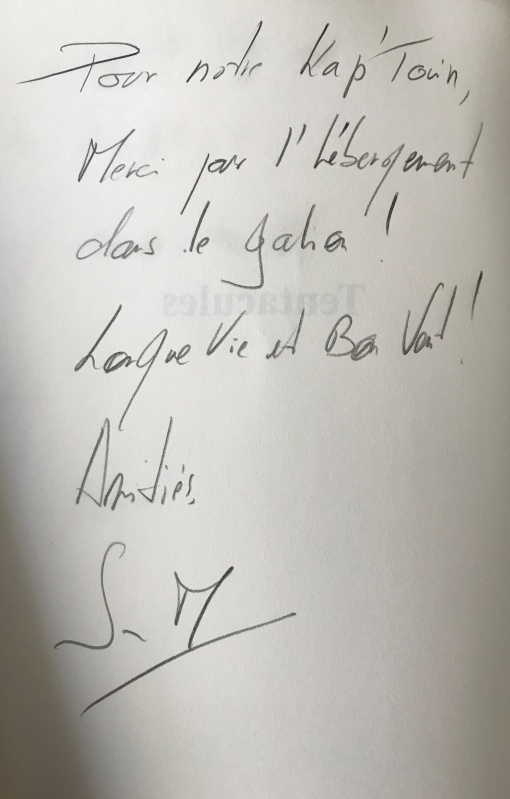 Pour notre Kap'Toin,
Merci pour l'hébergement
dans le galion !
Tentacules
Longue Vie et Bon Vent !
Amitiés,
S M